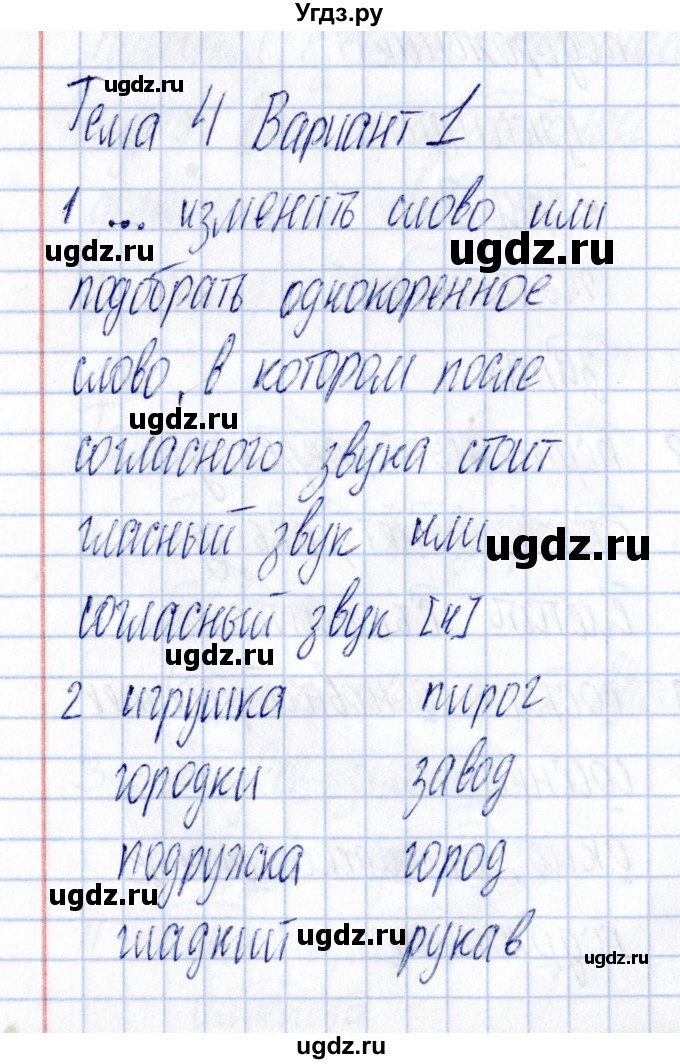 Угдз.ру
ugdz.ru
Тема 4 Вариант 1
1 ... изменить слово или
ugdz.ru
ugdz.ru
подобрать однокоренное
слово, в котором после
ugdz.ru
согласного звука стоит
гласный звук или
ugdz.ru
согласный звук [н]
ugdz.ru
2 игрушка пирог
городки завод
подружка город
ugdz.ru
гладкий рукав
ugdz.ru
ugdz.ru
ugdz.ru